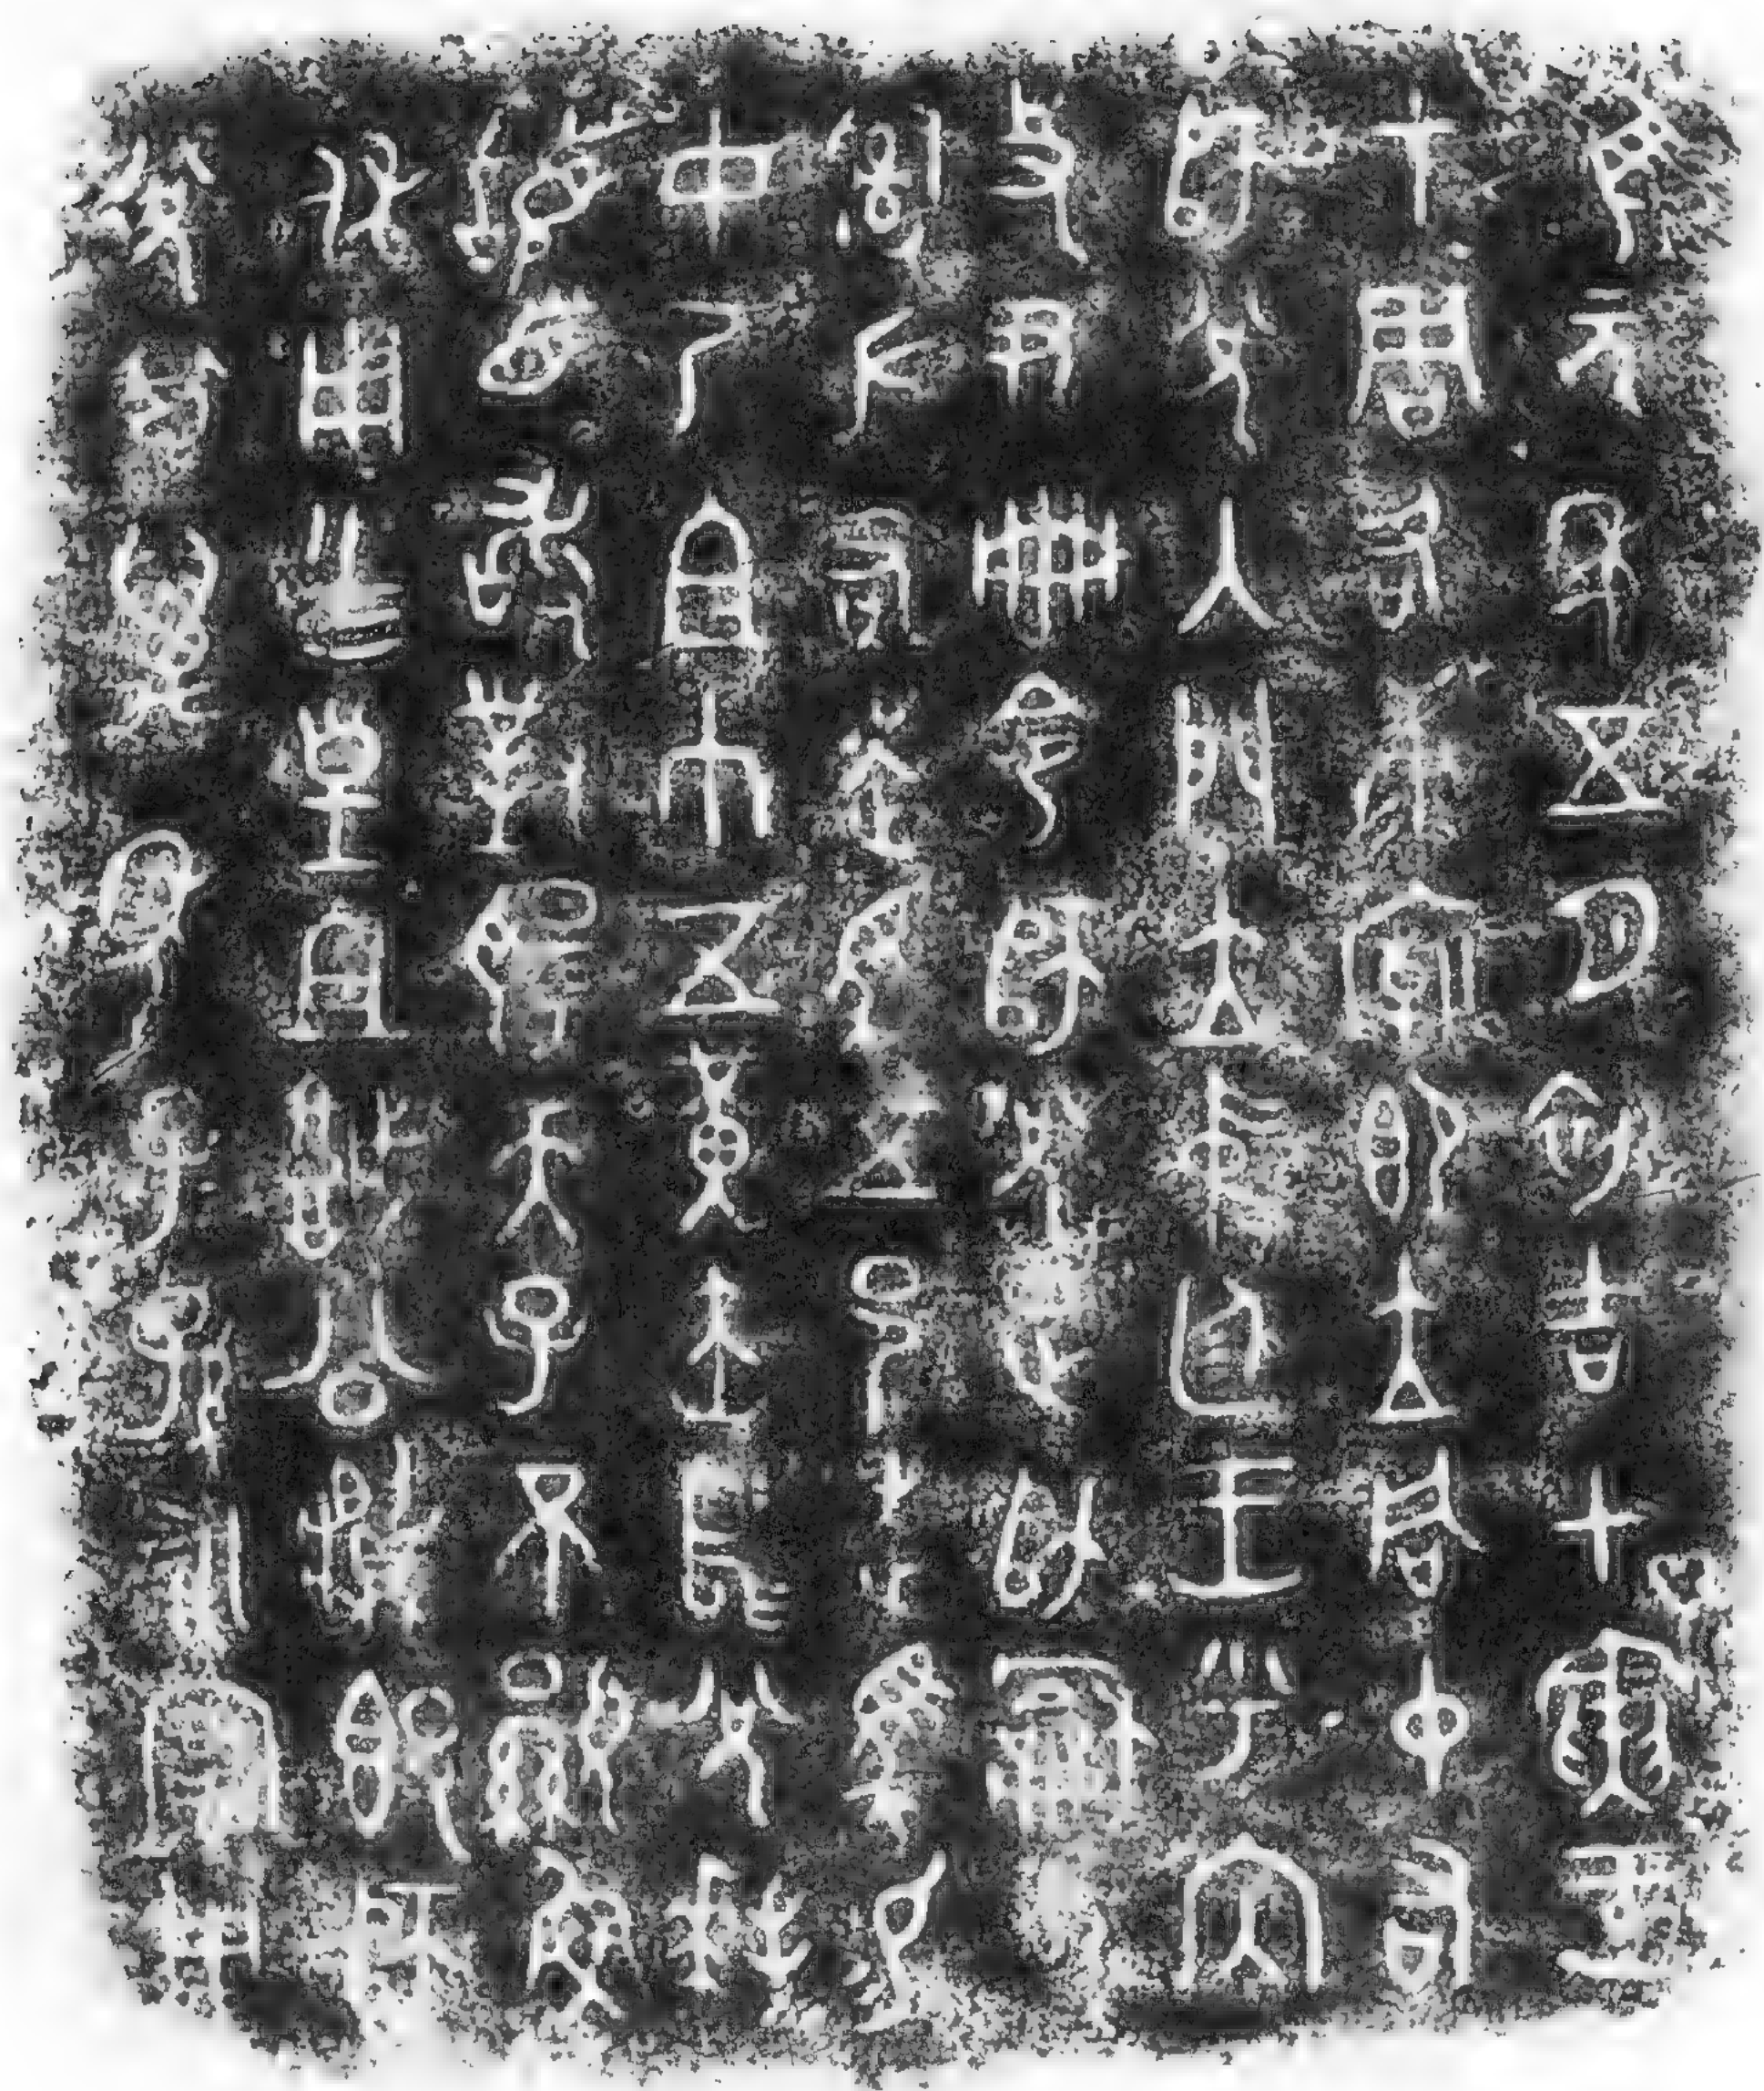 隹元年五月初吉甲寅王
才周各康廟即立同中右
師兌入門立中廷王乎內
史尹冊令師兌疋師龢父
𤔲左右走馬五邑走馬易
女乃且巾五黃赤舄兌拜
𩒨首敢對揚天子不顯魯
休用乍皇且城公𩰬𣪘師
兌其萬年子子孫孫永寶用